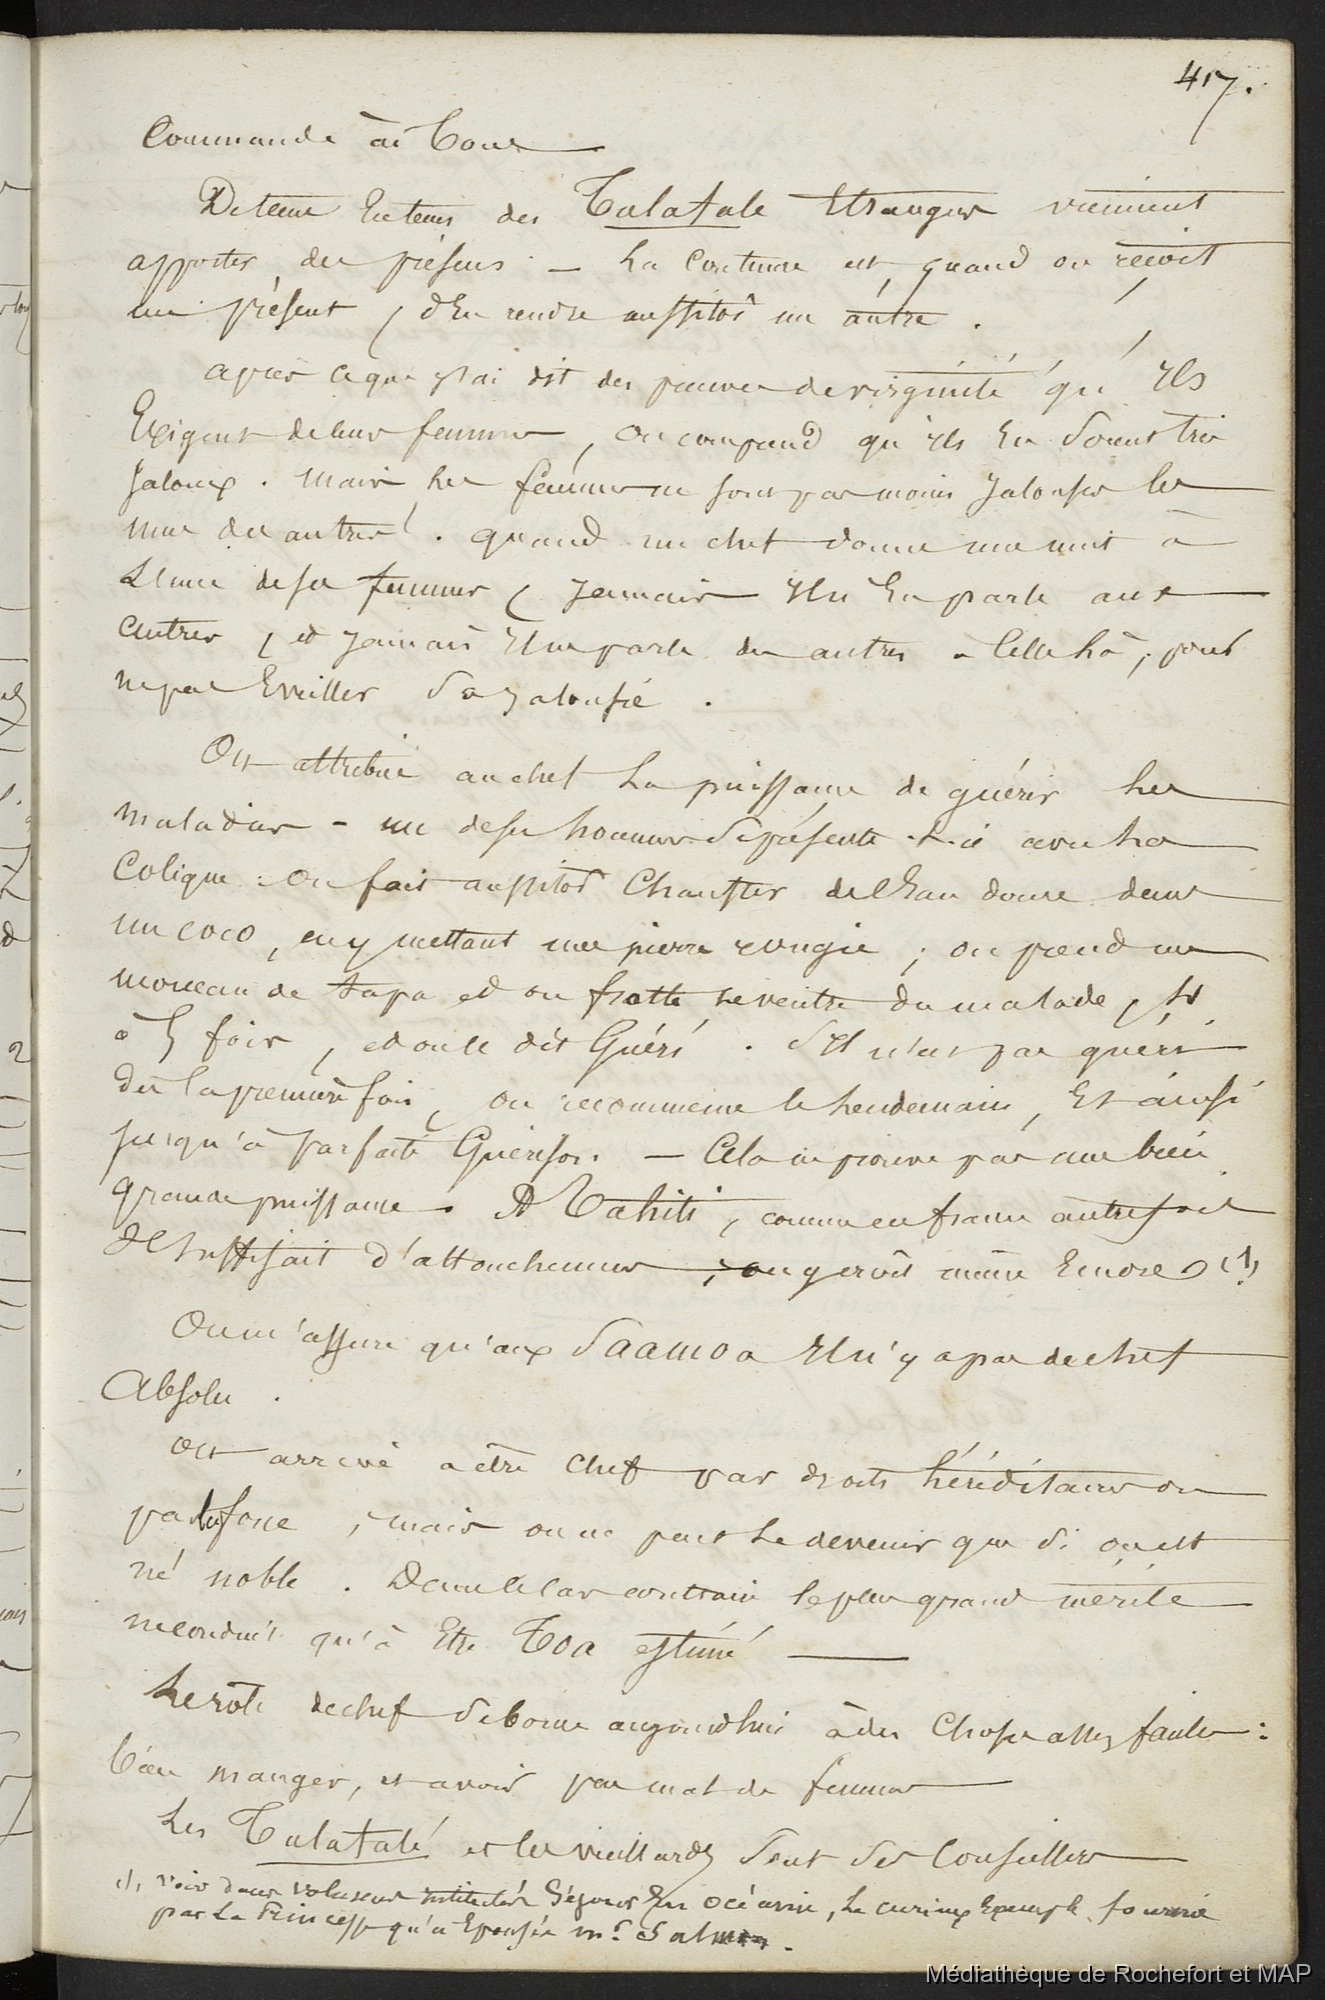 417.
Commande à Tous
De tems En tems des Tulafale Etrangers viennent
apporter des présens – La Coutume est, quand on reçoit
un présent, d'En rendre aussitôt un autre.
après ce que J'ai dit des preuves de virginité qu'Ils
Exigent de leurs femmes, on comprend qu'ils En Soient très
Jaloux. Mais les femmes ne sont pas moins Jalouses les
unes des autres. quand un chef donne une nuit à
L'une de ses femmes, Jamais Il n'En parle aux
autres, et Jamais Il ne parle des autres à Celle là, pour
ne pas Eveiller Sa Jalousie.
On attribue au chef La puissance de guérir les
maladies – un de ses hommes Se présente. Il a la
Colique. On fait aussitôt Chauffer de l'Eau douce dans
un coco, en y mettant une pierre rougie; on prend un
morceau de tapa et on frotte Le ventre du malade, 4
à 5 fois, et on le dit Guéri. S'Il n'est pas guéri
dès la première fois, on recommence le Lendemain, Et ainsi
Jusqu'à parfaite Guérison – Cela ne prouve pas une bien
grande puissance. A Tahiti, comme en france autrefois
Il suffisait d'attouchemens, on y croit même Encore (1)
On m'assure qu'aux Saamoa Il n'y a pas de chef
Absolu.
On arrive à être Chef par droits héréditaires ou
par la force, mais on ne peut Le devenir que Si on est
né noble. Dans le Cas contraire le plus grand mérite
ne conduit qu'à Etre Toa estimé —
Le rôle de chef Se borne aujourd'hui à des Choses assez faciles:
bien manger, et avoir pas mal de femmes
Les Tulafalé et les vieillards Sont Ses Conseillers
(1) voir dans volumes intitulés Séjour En Océanie, Le curieux Exemple fourni
par La Princesse qu'a Epousée mr. Salmon.